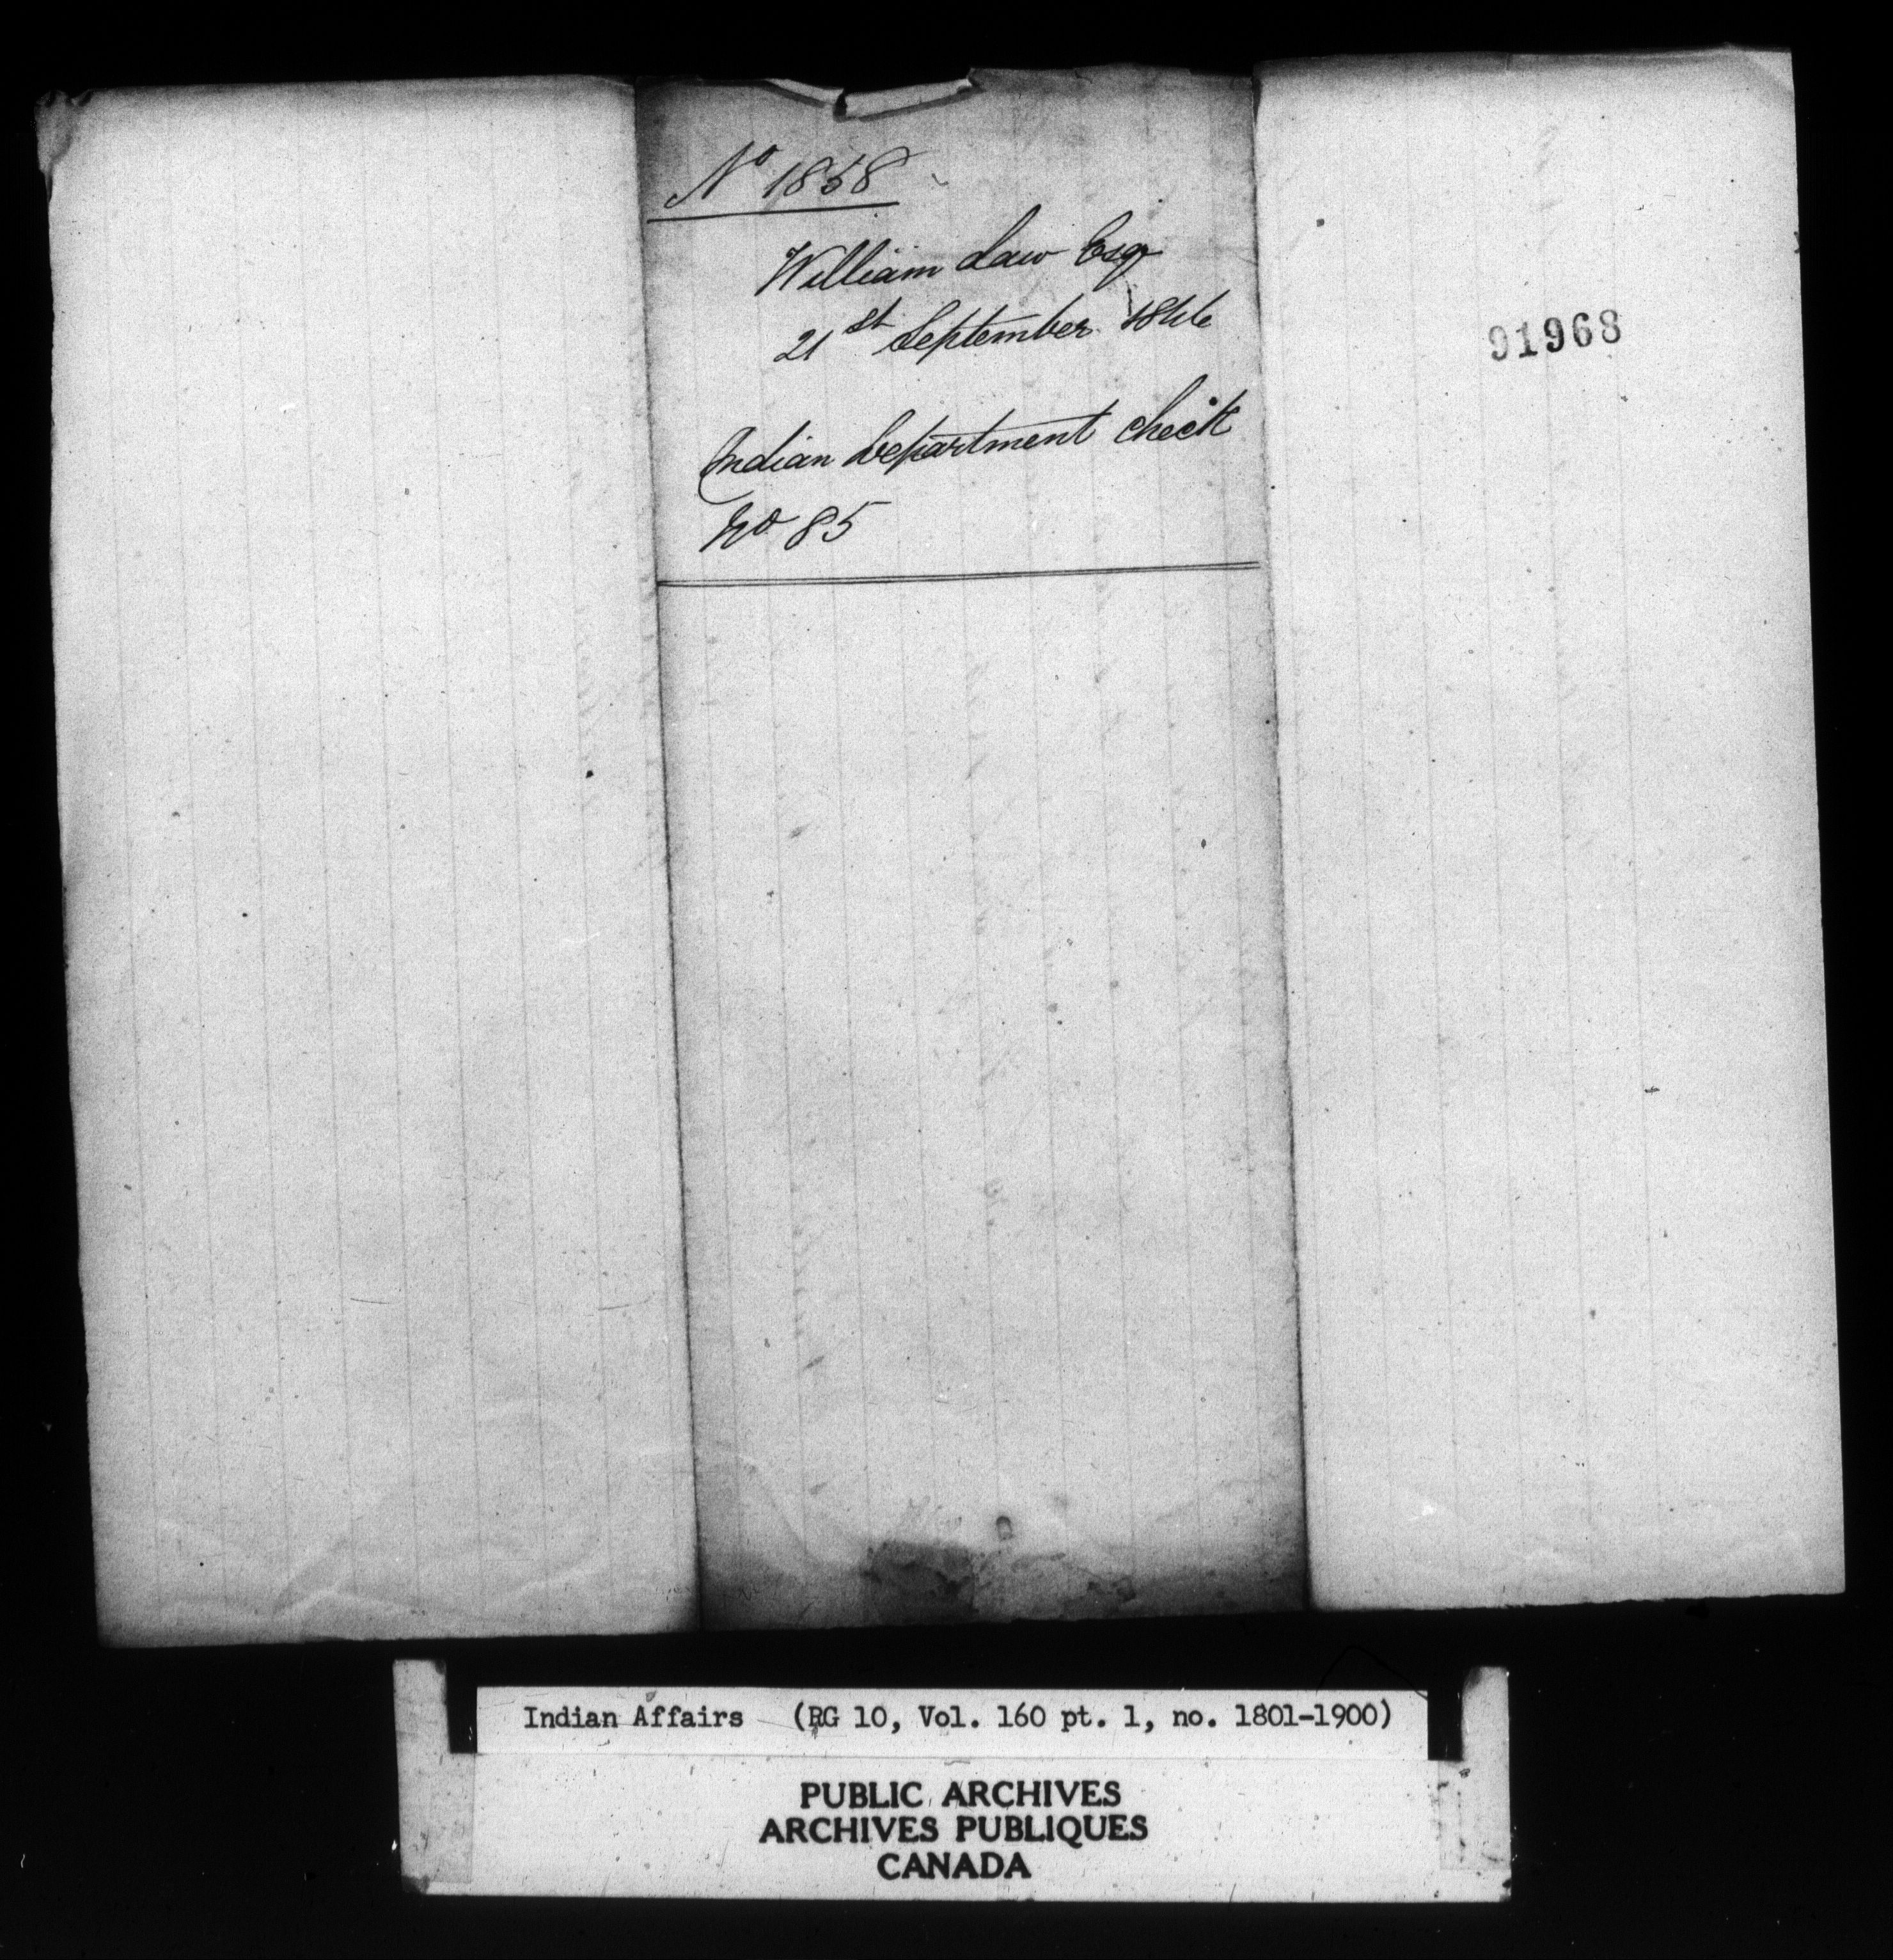 No 1858
William Law Esqr
21st September 1846
Indian Department Check
No 85
91968
Indian Affairs (RG 10, Vol. 160 pt. 1, no. 1801-1900)
PUBLIC ARCHIVES
ARCHIVES PUBLIQUES
CANADA